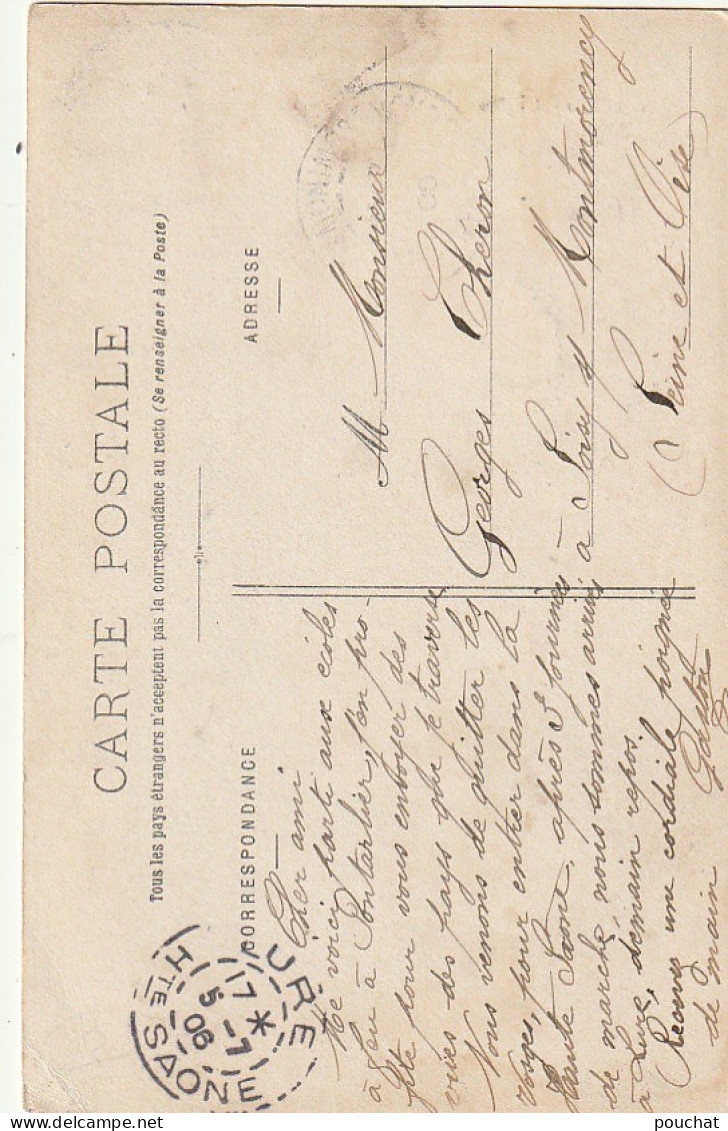 CARTE POSTALE
Tous les pays étrangers n'acceptent pas la correspondance au recto (Se renseigner à la Poste)
CORRESPONDANCE
ADRESSE
Cher ami
Me voici parti aux écoles
à feu à Pontarlier, j'en pro-
fite pour vous envoyer des
vues des pays que je traverse
Nous venons de quitter les
Vosges, pour entrer dans la
Haute Saone, après 5 journées
de marche, nous sommes arrivés
à Lure, demain repos.
Recevez une cordiale poignée
de main Gaston
M Monsieur
Georges Théron
à Soisy s/ Montmorency
(Seine et Oise)
URE
Hte SAONE
7 *
5 - 7
06
MONTMORENCY
06
pouchat